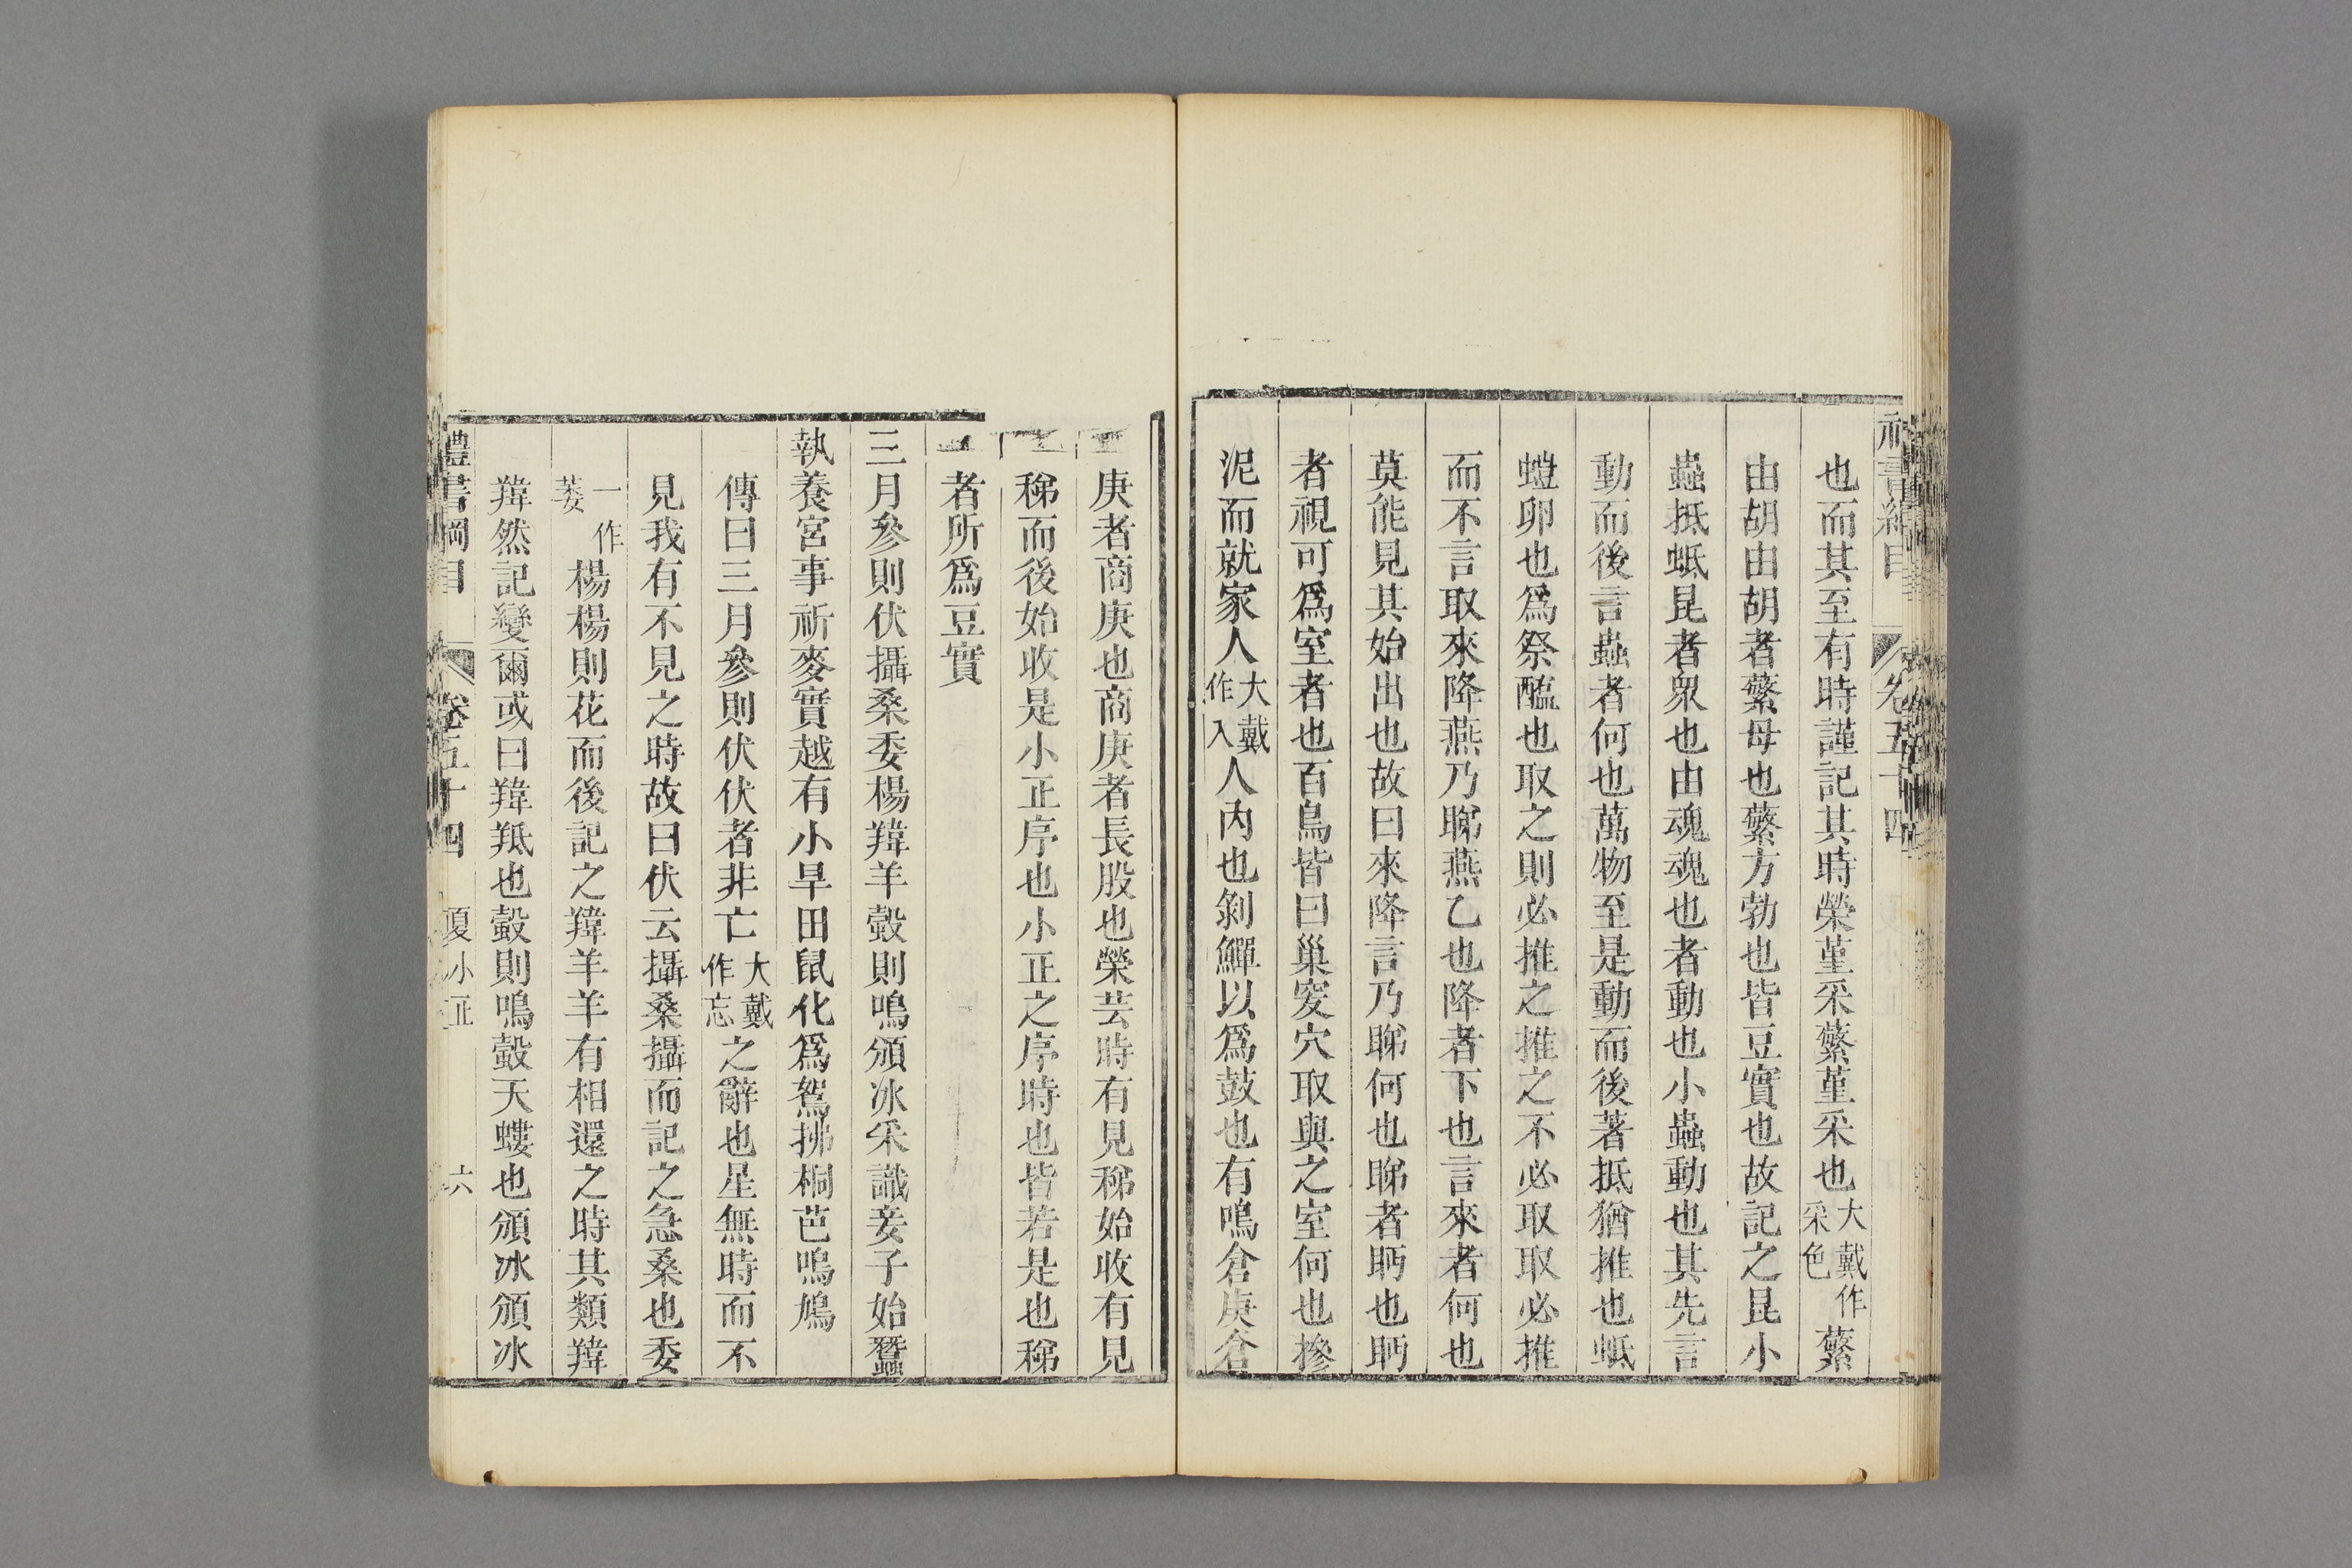 禮書綱目 卷五十四
也而其至有時謹記其時榮堇采蘩堇采也大戴作采色蘩
由胡由胡者蘩母也蘩方勃也皆豆實也故記之昆小
蟲抵蚳昆者衆也由魂魂也者動也小蟲動也其先言
動而後言蟲者何也萬物至是動而後著抵猶推也蚳
螘卵也爲祭醢也取之則必推之推之不必取取必推
而不言取來降燕乃睇燕乙也降者下也言來者何也
莫能見其始出也故曰來降言乃睇何也睇者眄也眄
者視可爲室者也百鳥皆曰巢穾穴取與之室何也摻
泥而就家人大戴作入人內也剝鱓以爲鼓也有鳴倉庚倉
庚者商庚也商庚者長股也榮芸時有見稊始收有見
稊而後始收是小正序也小正之序時也皆若是也稊
者所爲豆實
三月參則伏攝桑委楊羵羊螜則鳴頒冰采識妾子始蠶
執養宮事祈麥實越有小旱田鼠化爲鴽拂桐芭鳴鳩
傳曰三月參則伏伏者非亡大戴作忘之辭也星無時而不
見我有不見之時故曰伏云攝桑攝而記之急桑也委
一作萎楊楊則花而後記之羵羊羊有相還之時其類羵
羵然記變爾或曰羵羝也螜則鳴螜天螻也頒冰頒冰
禮書綱目 卷五十四 夏小正 六